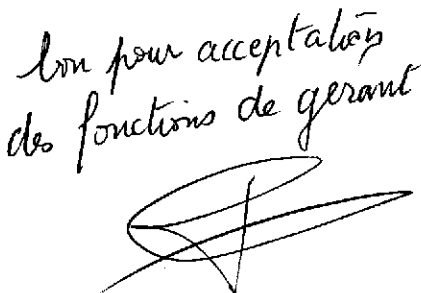 bon pour acceptation
des fonctions de gerant